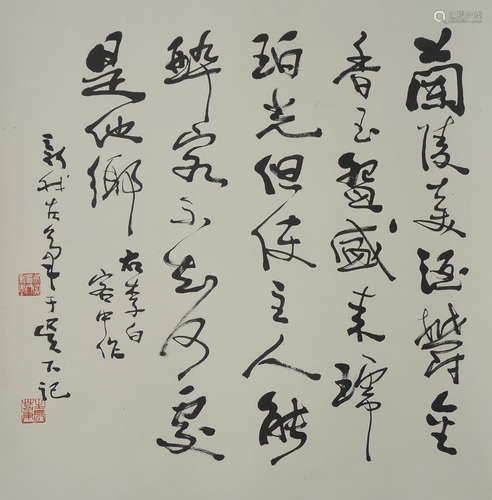 蘭陵美酒鬱金
香玉盌盛来琥
珀光但使主人能
醉客不知何處
是他鄉
右李白
客中作
新我左筆于吴下記